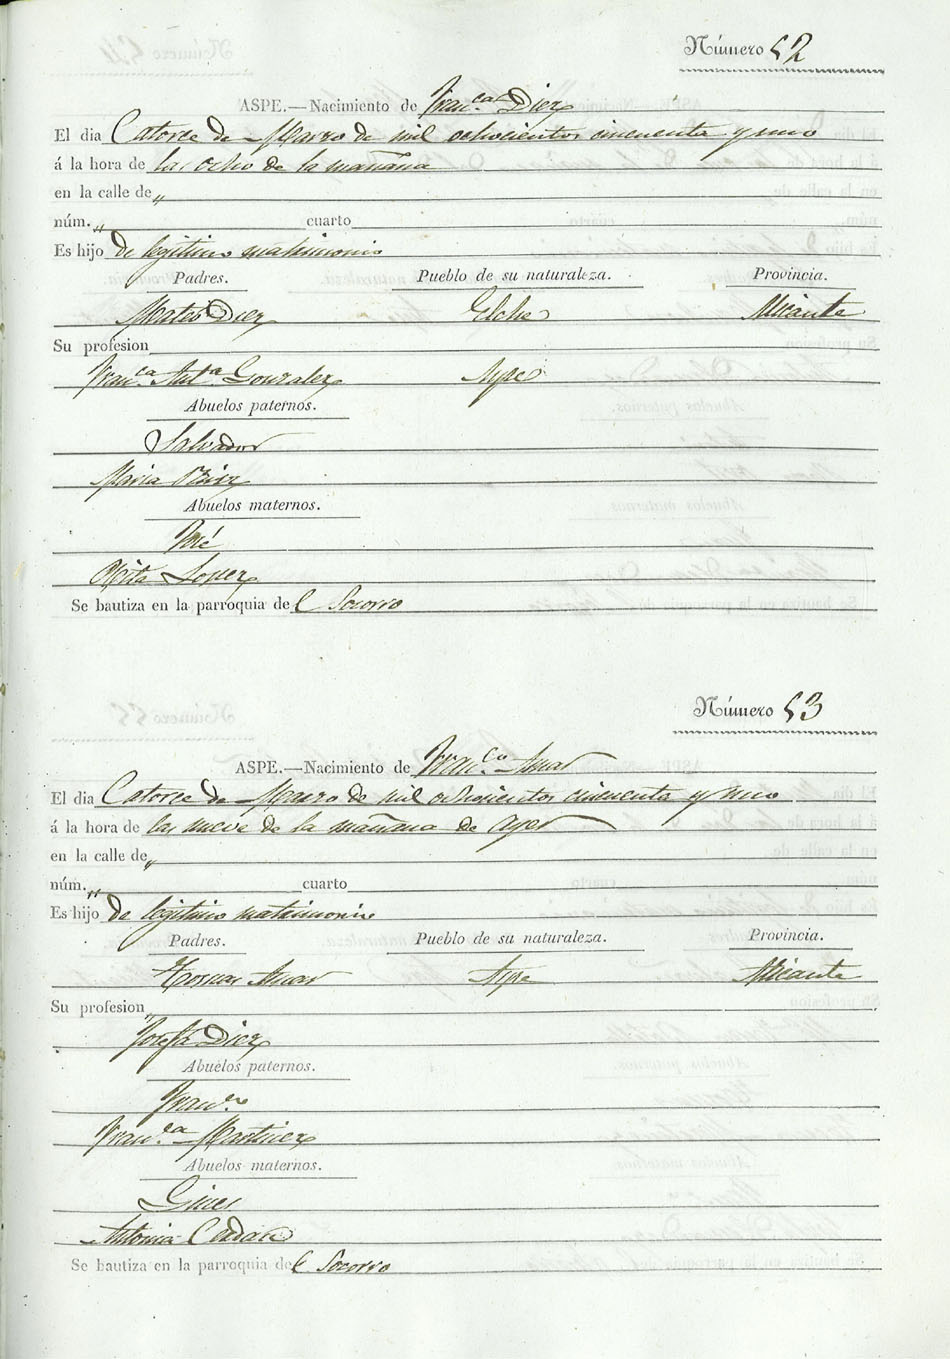 Número 52
ASPE.—Nacimiento de Fran.ca Diez
El dia Catorce de Marzo de mil ochocientos cincuenta y uno
á la hora de las ocho de la mañana
en la calle de „
núm. „ cuarto
Es hijo de legitimo matrimonio
Padres. Pueblo de su naturaleza. Provincia.
Mateo Diez Elche Alicante
Su profesion
Fran.ca Ant.a Gonzalez Aspe
Abuelos paternos.
Salvador
Maria
Abuelos maternos.
José
Rita Lopez
Se bautiza en la parroquia del Socorro
Número 53
ASPE.—Nacimiento de Fran.co
El dia Catorce de Marzo de mil ochocientos cincuenta y uno
á la hora de las nueve de la mañana de ayer
en la calle de „
núm. „ cuarto
Es hijo de legitimo matrimonio
Padres. Pueblo de su naturaleza. Provincia.
Aspe Alicante
Su profesion
Josefa Diez
Abuelos paternos.
Fran.co
Fran.ca Martinez
Abuelos maternos.
Gines
Antonia Cerdan
Se bautiza en la parroquia del Socorro